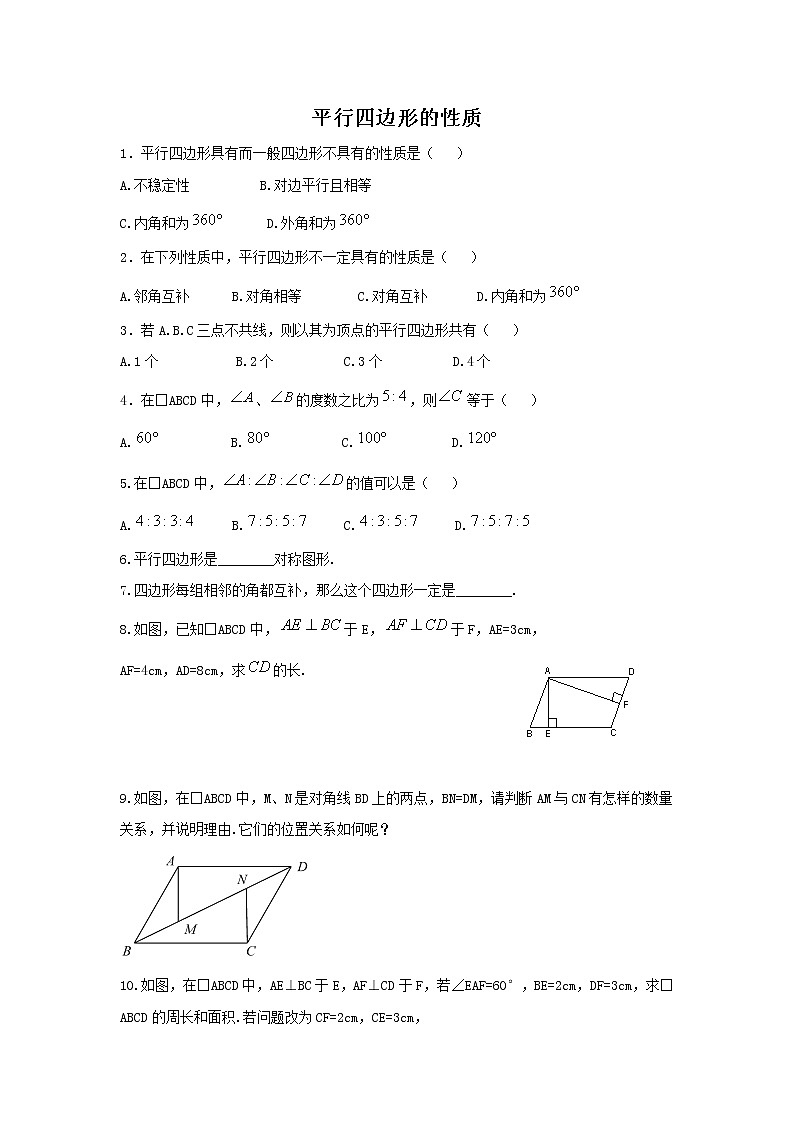 平行四边形的性质
1．平行四边形具有而一般四边形不具有的性质是（ ）
A.不稳定性 B.对边平行且相等
C.内角和为360° D.外角和为360°
2．在下列性质中，平行四边形不一定具有的性质是（ ）
A.邻角互补 B.对角相等 C.对角互补 D.内角和为360°
3．若A.B.C三点不共线，则以其为顶点的平行四边形共有（ ）
A.1个 B.2个 C.3个 D.4个
4．在□ABCD中，∠A、∠B的度数之比为5:4，则∠C等于（ ）
A.60° B.80° C.100° D.120°
5.在□ABCD中，∠A:∠B:∠C:∠D的值可以是（ ）
A.4:3:3:4 B.7:5:5:7 C.4:3:5:7 D.7:5:7:5
6.平行四边形是________对称图形.
7.四边形每组相邻的角都互补，那么这个四边形一定是________.
8.如图，已知□ABCD中，AE⊥BC于E，AF⊥CD于F，AE=3cm，
AF=4cm，AD=8cm，求CD的长.
A D
F
B E C
9.如图，在□ABCD中，M、N是对角线BD上的两点，BN=DM，请判断AM与CN有怎样的数量
关系，并说明理由.它们的位置关系如何呢？
A D
N
M
B C
10.如图，在□ABCD中，AE⊥BC于E，AF⊥CD于F，若∠EAF=60°，BE=2cm，DF=3cm，求□
ABCD的周长和面积.若问题改为CF=2cm，CE=3cm，